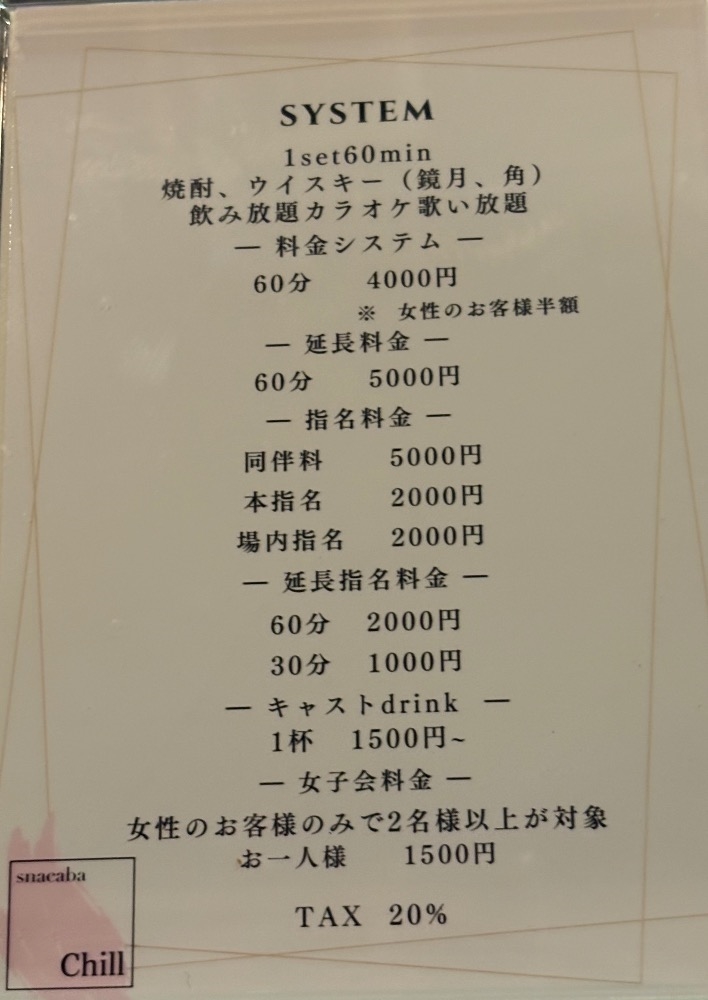 SYSTEM
1set60min
焼酎、ウイスキー（鏡月、角）
飲み放題カラオケ歌い放題
― 料金システム ―
60分 4000円
※ 女性のお客様半額
― 延長料金 ―
60分 5000円
― 指名料金 ―
同伴料 5000円
本指名 2000円
場内指名 2000円
― 延長指名料金 ―
60分 2000円
30分 1000円
― キャストdrink ―
1杯 1500円~
― 女子会料金 ―
女性のお客様のみで2名様以上が対象
お一人様 1500円
TAX 20%
snacaba
Chill